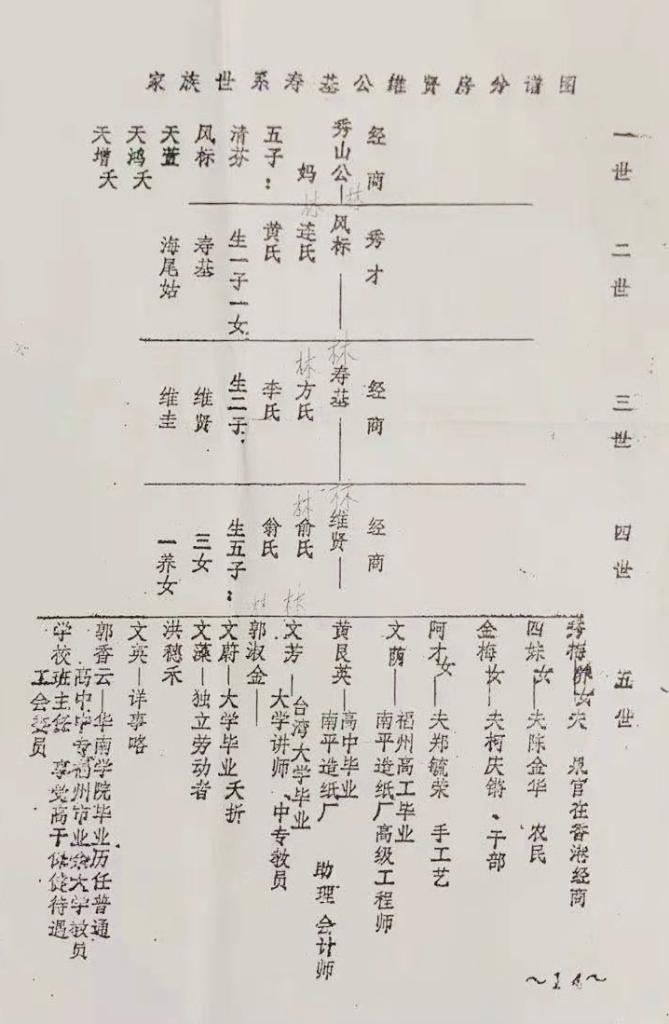 家族世系寿基公维贤房分谱图
一世
经商
秀山公
妈
五子：
清芬
风标
天萱
天鸿夭
天增夭
二世
秀才
风标
林
连氏
林
黄氏
生一子一女
寿基
海尾姑
三世
经商
林
寿基
林
方氏
李氏
生二子
维贤
维圭
四世
经商
林
维贤
林
俞氏
翁氏
生五子：
三女
一养女
五世
秀梅养女夫 泉官在香港经商
四妹女——夫陈金华 农民
金梅女——夫柯庆锵、干部
阿才女——夫郑毓荣 手工艺
文荫——福州高工毕业
南平造纸厂高级工程师
黄艮英——高中毕业
南平造纸厂
助理会计师
林
文芳——台湾大学毕业
大学讲师、中专教员
林
郭淑金——
文蔚——大学毕业 夭折
文藻——独立劳动者
洪穗禾
文英——详事略
郭香云——华南学院毕业历任普通
高中中专福州市业余大学教员
学校班主任 享受高干保健待遇
工会委员